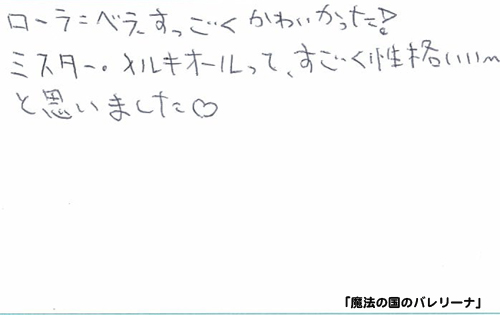 ローラ=ベラ、すっごくかわいかった!
ミスター・メルキオールって、すごく性格いい人
と思いました♡
「魔法の国のバレリーナ」